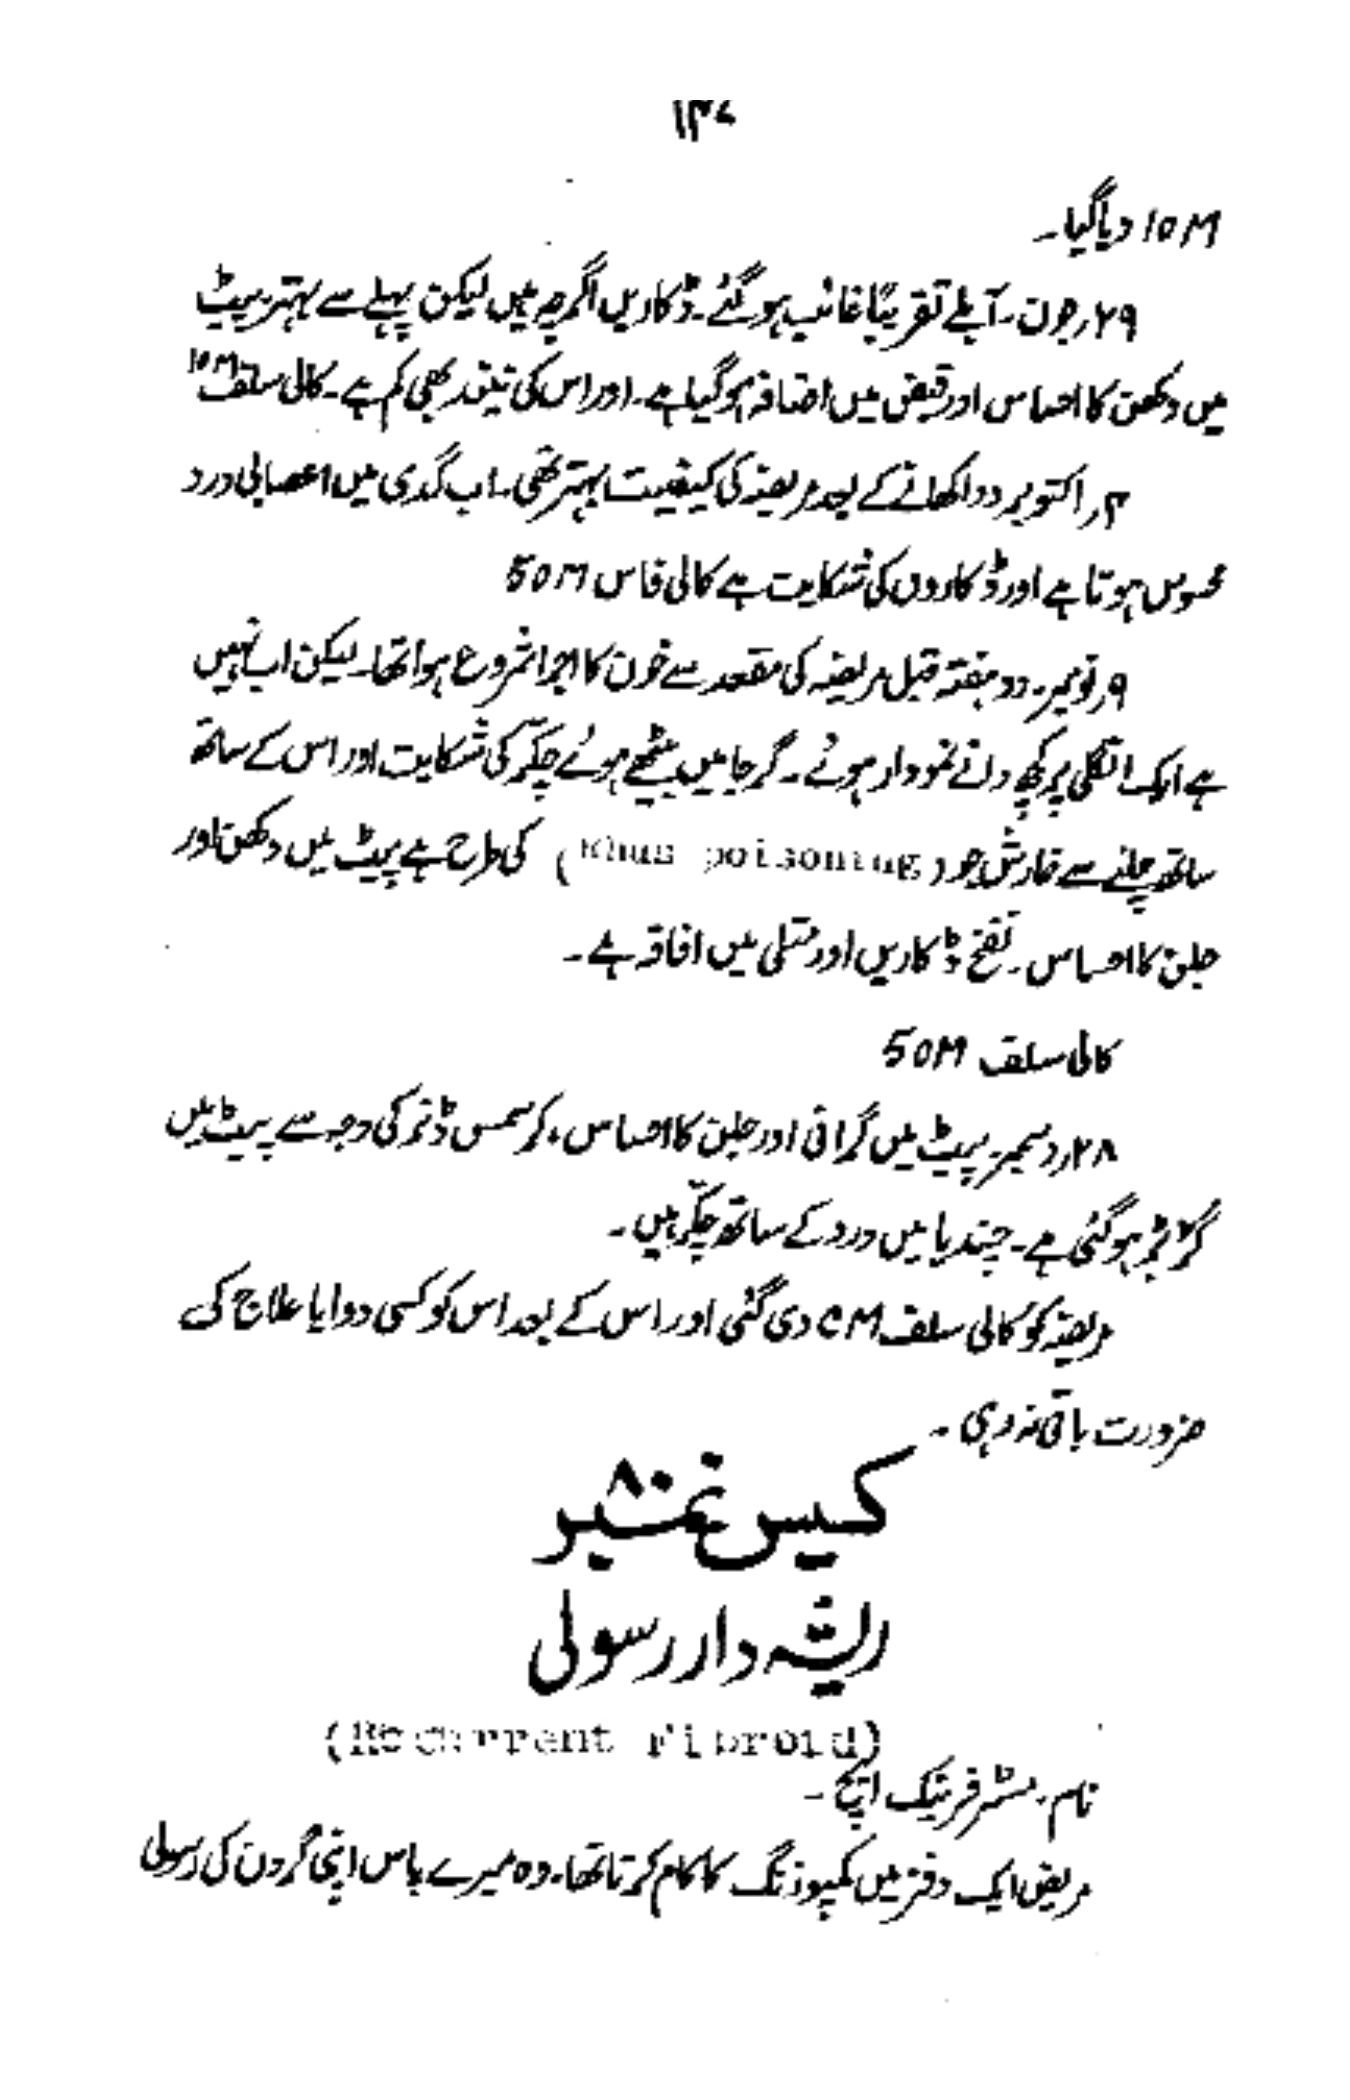 ۱۴۷
10M دیا گیا۔
۲۹؍جون۔ آبلے تقریباً غائب ہو گئے۔ ڈکاریں اگرچہ ہیں لیکن پہلے سے بہتر۔ پیٹ
میں دکھن کا احساس اور قبض میں اضافہ ہو گیا ہے۔ اور اس کی نیند بھی کم ہے۔ کالی سلف 10M
۳؍اکتوبر دوا کھانے کے بعد مریضہ کی کیفیت بہتر تھی۔ اب گدی میں اعصابی درد
محسوس ہوتا ہے اور ڈکاروں کی شکایت ہے کالی فاس 50M
۹؍نومبر۔ دو ہفتہ قبل مریضہ کی مقعد سے خون کا اجرا شروع ہوا تھا۔ لیکن اب نہیں
ہے ایک انگلی پر کچھ دانے نمودار ہوئے۔ گرجا میں بیٹھے ہوئے چکر کی شکایت اور اس کے ساتھ
ساتھ چلنے سے خارش جو (Rhus poisoning) کی طرح ہے پیٹ میں دکھن اور
جلن کا احساس۔ نفخ ڈکاریں اور متلی میں افاقہ ہے۔
کالی سلف 50M
۲۸؍دسمبر۔ پیٹ میں گرانی اور جلن کا احساس، کرسمس ڈنر کی وجہ سے پیٹ میں
گڑبڑ ہو گئی ہے۔ چندیا میں درد کے ساتھ چکر ہیں۔
مریضہ کو کالی سلف CM دی گئی اور اس کے بعد اس کو کسی دوا یا علاج کی
ضرورت باقی نہ رہی۔
کیس نمبر ۸۰
ریشہ دار رسولی
(Recurrent Fibroid)
نام۔ مسٹر فرینک ایچ۔
مریض ایک دفتر میں کمپوزنگ کا کام کرتا تھا۔ وہ میرے پاس اپنی گردن کی رسولی